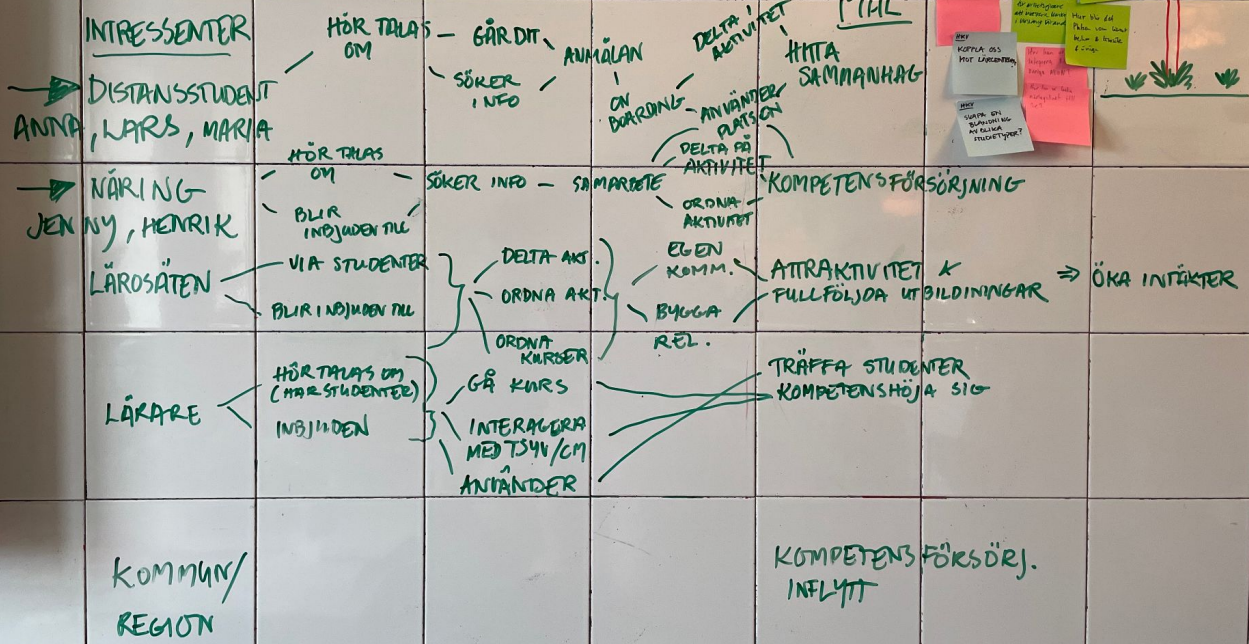 INTRESSENTER
DISTANSSTUDENT
ANNA, LARS, MARIA
HÖR TALAS
OM
GÅ DIT
SÖKER
INFO
ANMÄLAN
ON
BOARDING
DELTA I
AKTIVITET
ANVÄNDER
PLATSEN
HITTA
SAMMANHAG
NÄRING
JENNY, HENRIK
HÖR TALAS
OM
BLIR
INBJUDEN TILL
SÖKER INFO
SAMARBETE
DELTA PÅ
AKTIVITET
ORDNA
AKTIVITET
KOMPETENSFÖRSÖRJNING
LÄROSÄTEN
VIA STUDENTER
BLIR INBJUDEN TILL
DELTA AKT.
ORDNA AKT.
ORDNA
KURSER
EGEN
KOMM.
BYGGA
REL.
ATTRAKTIVITET
FULLFÖLJDA UTBILDININGAR
⇒ ÖKA INTÄKTER
LÄRARE
HÖR TALAS OM
(HAR STUDENTER)
INBJUDEN
GÅ KURS
INTERAGERA
MED TSYV/CM
ANVÄNDER
TRÄFFA STUDENTER
KOMPETENSHÖJA SIG
KOMMUN/
REGION
KOMPETENSFÖRSÖRJ.
INFLYTT
HKV
KOPPLA OSS
MOT LÄRCENTRA
HKV
SKAPA EN
BLANDNING
AV OLIKA
STUDIETYPER?